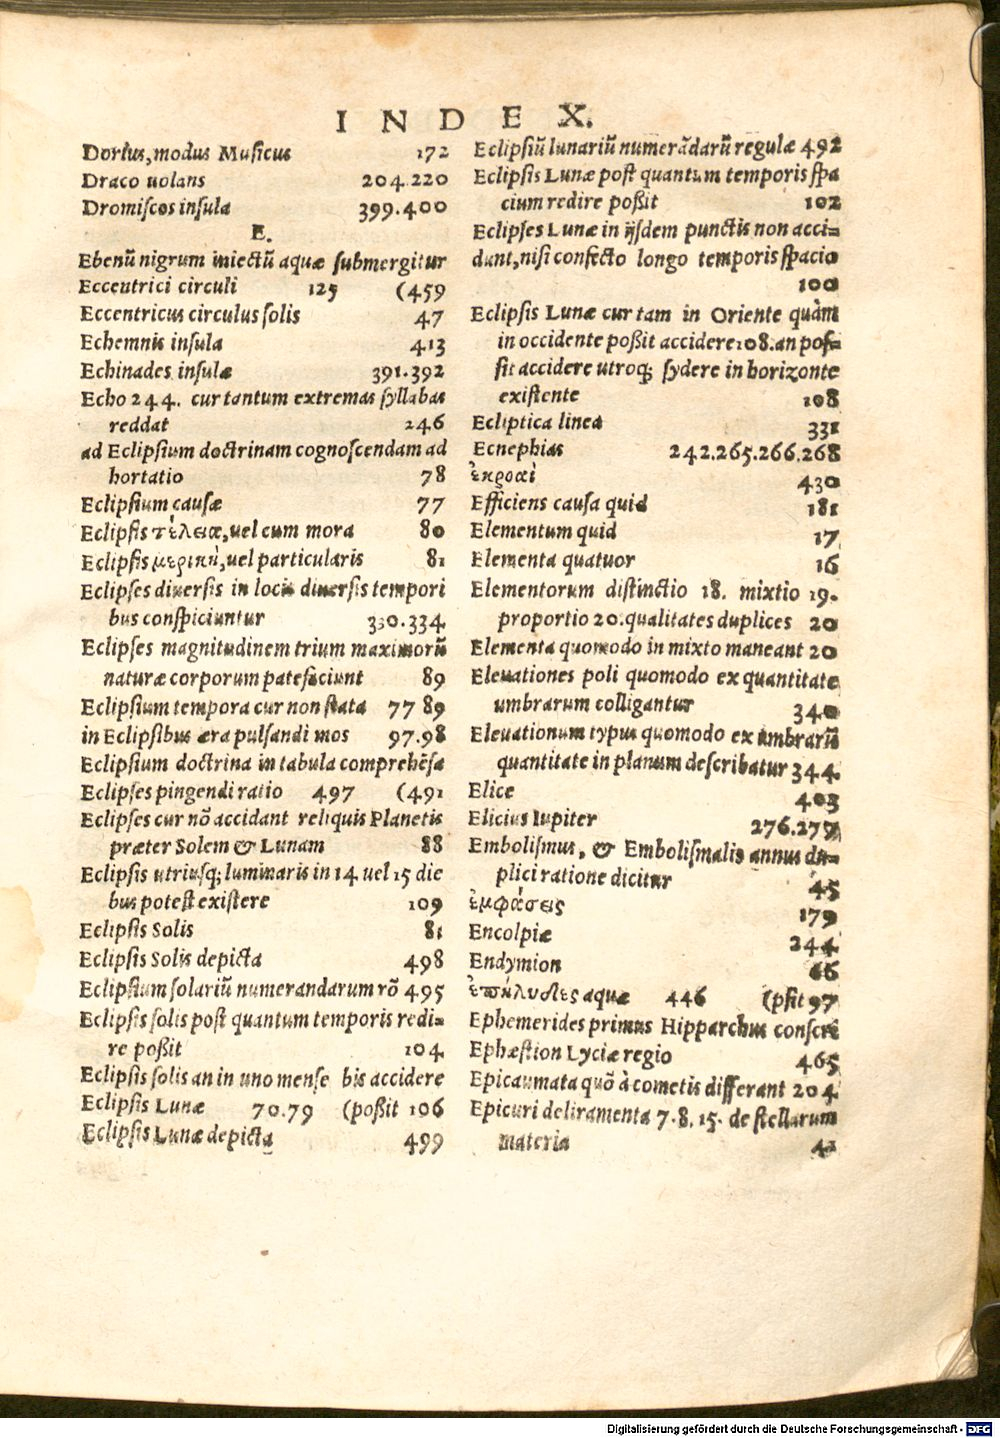 INDEX.
Dorius, modus Musicus 172
Draco uolans 204.220
Dromiscos insula 399.400
E.
Ebenũ nigrum iniectũ aquæ submergitur
Eccentrici circuli 125 (459
Eccentricus circulus solis 47
Echemnis insula 413
Echinades insulæ 391.392
Echo 244. cur tantum extremas syllabas
reddat 246
ad Eclipsium doctrinam cognoscendam ad
hortatio 78
Eclipsium causæ 77
Eclipsis τέλεια, uel cum mora 80
Eclipsis μερικὴ, uel particularis 81
Eclipses diuersis in locis diuersis tempori
bus conspiciuntur 330.334
Eclipses magnitudinem trium maximorũ
naturæ corporum patefaciunt 89
Eclipsium tempora cur non stata 77 89
in Eclipsibus æra pulsandi mos 97.98
Eclipsium doctrina in tabula comprehẽsa
Eclipses pingendi ratio 497 (491
Eclipses cur nõ accidant reliquis Planetis
præter Solem & Lunam 88
Eclipsis utriusq; luminaris in 14 uel 15 die
bus potest existere 109
Eclipsis Solis 81
Eclipsis Solis depicta 498
Eclipsium solariũ numerandarum rõ 495
Eclipsis solis post quantum temporis redi=
re poßit 104
Eclipsis solis an in uno mense bis accidere
Eclipsis Lunæ 70.79 (poßit 106
Eclipsis Lunæ depicta 499
Eclipsiũ lunariũ numerãdarũ regulæ 492
Eclipsis Lunæ post quantum temporis spa
cium redire poßit 102
Eclipses Lunæ in ijsdem punctis non acci=
dunt, nisi confecto longo temporis spacio
100
Eclipsis Lunæ cur tam in Oriente quàm
in occidente poßit accidere 108. an pos=
sit accidere utroq; sydere in horizonte
existente 108
Ecliptica linea 331
Ecnephias 242.265.266.268
ἐκροαὶ 430
Efficiens causa quid 181
Elementum quid 17
Elementa quatuor 16
Elementorum distinctio 18. mixtio 19.
proportio 20. qualitates duplices 20
Elementa quomodo in mixto maneant 20
Eleuationes poli quomodo ex quantitate
umbrarum colligantur 340
Eleuationum typus quomodo ex umbrarũ
quantitate in planum describatur 344
Elice 403
Elicius Iupiter 276.277
Embolismus, & Embolismalis annus du=
plici ratione dicitur 45
ἐμφάσεις 179
Encolpiæ 244
Endymion 66
aquæ 446 (psit 97
Ephemerides primus Hipparchus conscri
Ephæstion Lyciæ regio 465
Epicaumata quõ à cometis differant 204
Epicuri deliramenta 7.8.15. de stellarum
materia 41
Digitalisierung gefördert durch die Deutsche Forschungsgemeinschaft - DFG